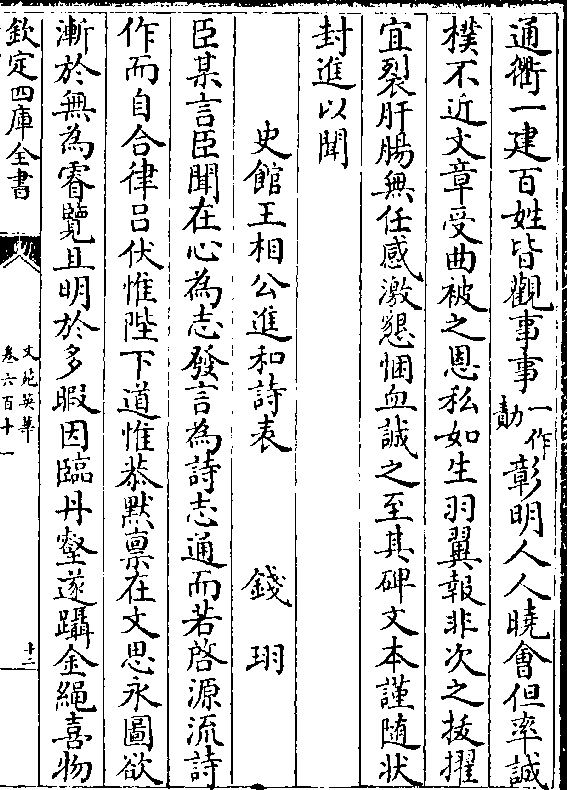 通衢一建百姓皆觀事事一作勣彰明人人曉會但率誠
樸不近文章受曲被之恩私如生羽翼報非次之拔擢
宜裂肝腸無任感激懇悃血誠之至其碑文本謹随状
封進以聞
史館王相公進和詩表 錢珝
臣某言臣聞在心為志發言為詩志通而若啓源流詩
作而自合律吕伏惟陛下道惟恭默禀在文思永圖欲
漸於無為睿覽且明於多暇因臨丹壑遂躡金繩喜物
欽定四庫全書
文苑英華
卷六百十一
十二